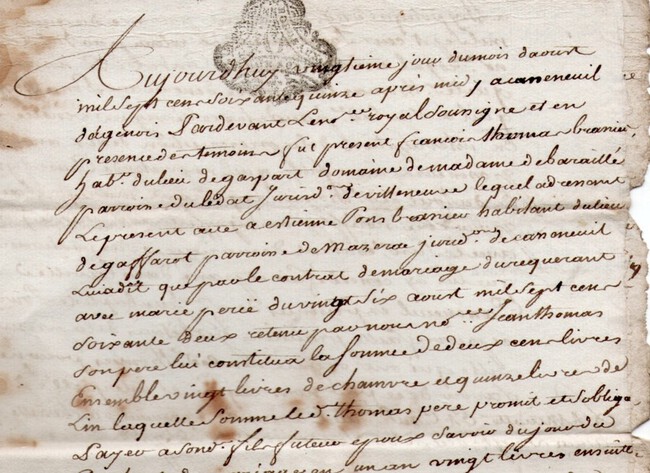 Aujourdhuy vingtième jour du mois daoust
mil sept cens soixante quinze après midy a canneneuil
dagenois Pardevant Le no.re royal soussigné et en
presence des temoins fut present françois thomas
hab.t du lieu de gaspart domaine de madame de baraillé
parroisse du ledat Jurisd.on de villeneuve lequel adressant
Le present acte a estienne Pons brasnier habitant du lieu
de gaffarot parroisse de Mazerac jurid.on de canneneuil
Luy a dit que par le contrat de mariage du requerant
avec marie perié du vingt six aoust mil sept cens
soixante deux retenu par nous no.re Jean thomas
son pere lui constitua la somme de deux cens livres
Ensemble vingt livres de chanvre et quinze livres de
Lin laquelle somme le d. thomas pere promit et soblige
Payer a son d. fils futeur epoux savoir du jour du
en un an vingt livres ensuitte